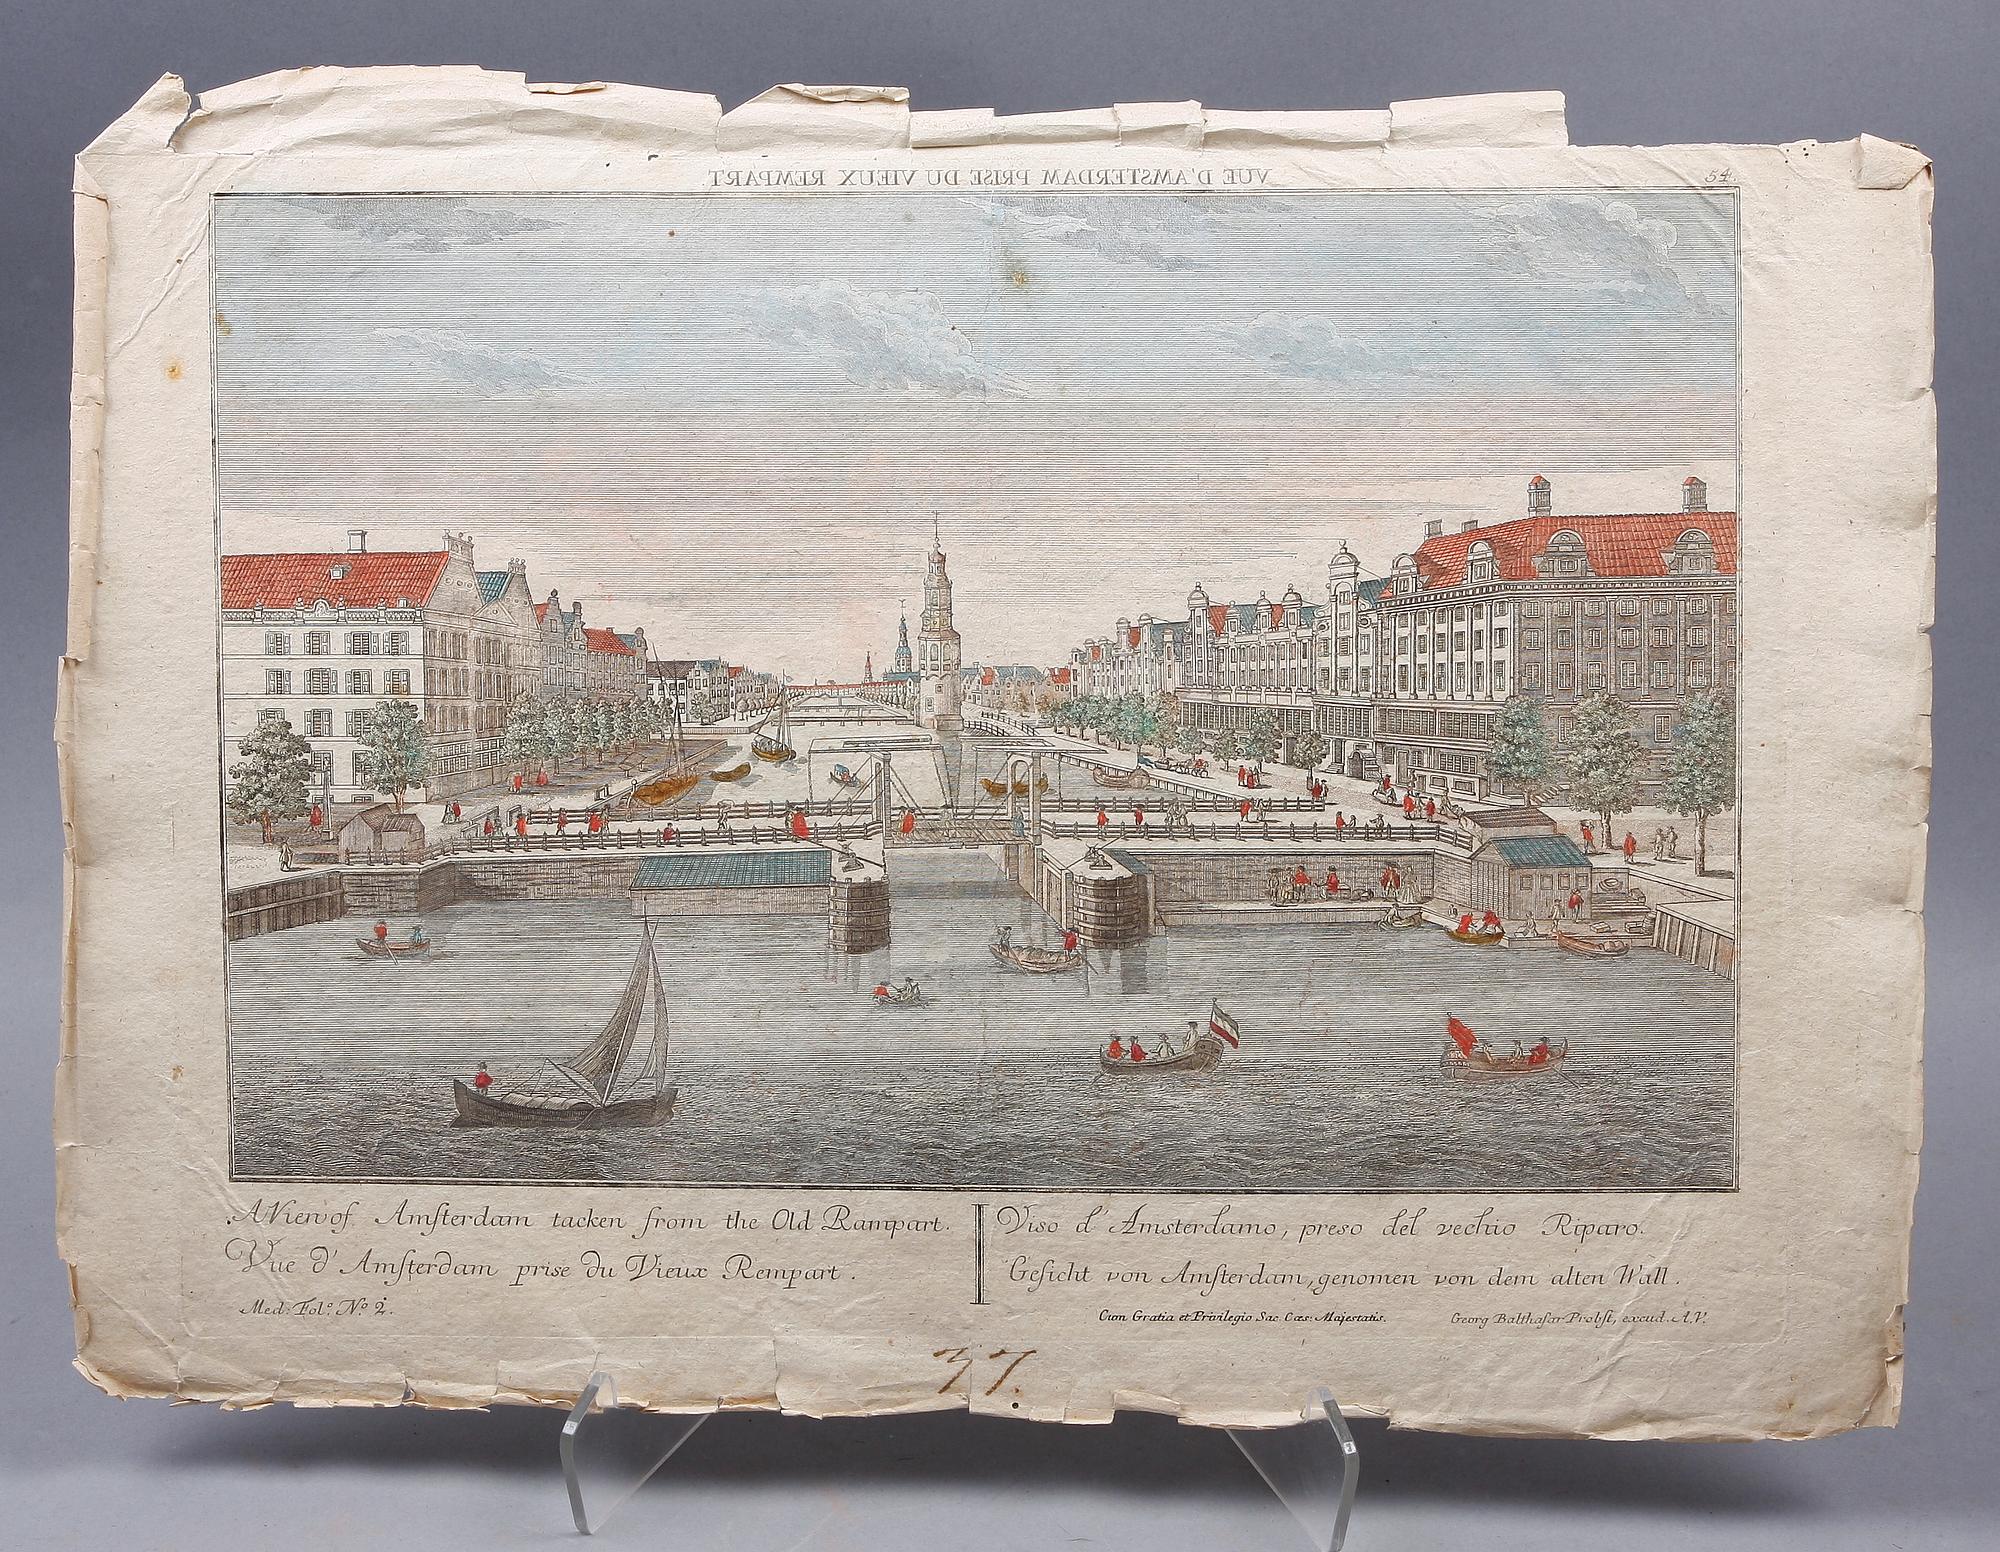 VUE D'AMSTERDAM PRISE DU VIEUX REMPART.
54.
A View of Amsterdam tacken from the Old Rampart.
Vue d'Amsterdam prise du Vieux Rempart.
Med: Fol.º Nº 2.
Viso d'Amsterdamo, preso del vechio Riparo.
Gesicht von Amsterdam, genomen von dem alten Wall.
Cum Gratia et Privilegio Sac. Cæs: Majestatis.
Georg Balthasar Probst, excud. A.V.
37.